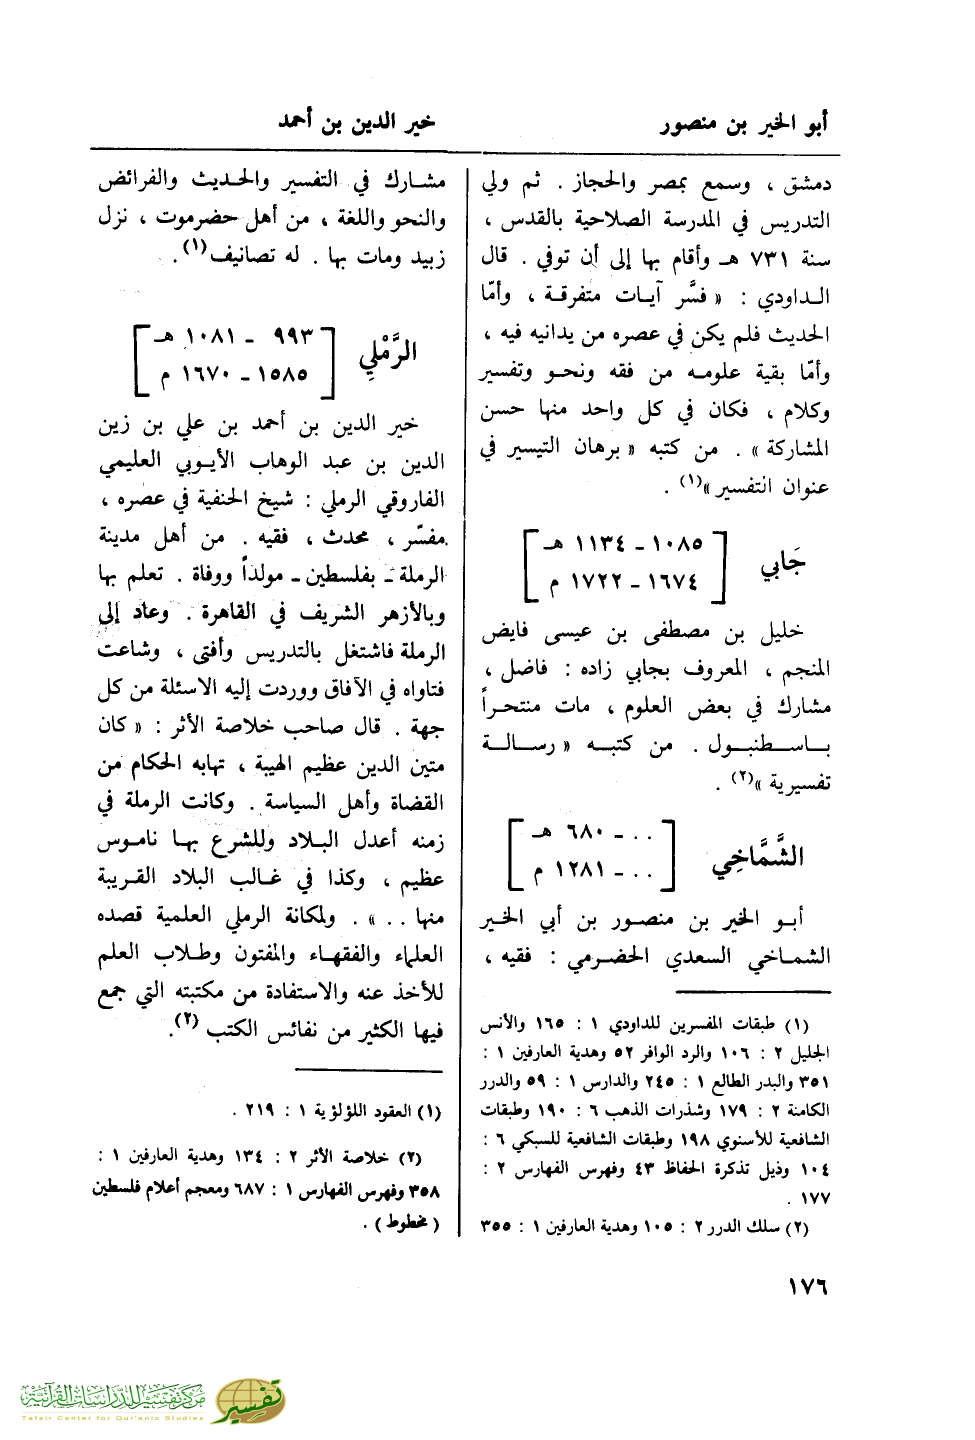 أبو الخير بن منصور
خير الدين بن أحمد
دمشق ، وسمع بمصر والحجاز . ثم ولي
التدريس في المدرسة الصلاحية بالقدس ،
سنة ٧٣١ هـ وأقام بها إلى أن توفي . قال
الداودي : « فسَّر آيات متفرقة ، وأمّا
الحديث فلم يكن في عصره من يدانيه فيه ،
وأمّا بقية علومه من فقه ونحو وتفسير
وكلام ، فكان في كل واحد منها حسن
المشاركة » . من كتبه « برهان التيسير في
عنوان التفسير »(١) .
جَابي
١٠٨٥ - ١١٣٤ هـ
١٦٧٤ - ١٧٢٢ م
خليل بن مصطفى بن عيسى فايض
المنجم ، المعروف بجابي زاده : فاضل ،
مشارك في بعض العلوم ، مات منتحراً
باسطنبول . من كتبه « رسالة
تفسيرية »(٢) .
الشَّمَّاخِي
.. - ٦٨٠ هـ
.. - ١٢٨١ م
أبو الخير بن منصور بن أبي الخير
الشماخي السعدي الحضرمي : فقيه ،
(١) طبقات المفسرين للداودي ١ : ١٦٥ والأنس
الجليل ٢ : ١٠٦ والرد الوافر ٥٢ وهدية العارفين ١ :
٣٥١ والبدر الطالع ١ : ٢٤٥ والدارس ١ : ٥٩ والدرر
الكامنة ٢ : ١٧٩ وشذرات الذهب ٦ : ١٩٠ وطبقات
الشافعية للأسنوي ١٩٨ وطبقات الشافعية للسبكي ٦ :
١٠٤ وذيل تذكرة الحفاظ ٤٣ وفهرس الفهارس ٢ :
١٧٧ .
(٢) سلك الدرر ٢ : ١٠٥ وهدية العارفين ١ : ٣٥٥
مشارك في التفسير والحديث والفرائض
والنحو واللغة ، من أهل حضرموت ، نزل
زبيد ومات بها . له تصانيف(١).
الرَّمْلِي
٩٩٣ - ١٠٨١ هـ
١٥٨٥ - ١٦٧٠ م
خير الدين بن أحمد بن علي بن زين
الدين بن عبد الوهاب الأيوبي العليمي
الفاروقي الرملي : شيخ الحنفية في عصره ،
مفسّر ، محدث ، فقيه . من أهل مدينة
الرملة - بفلسطين - مولداً ووفاة . تعلم بها
وبالأزهر الشريف في القاهرة . وعاد إلى
الرملة فاشتغل بالتدريس وأفتى ، وشاعت
فتاواه في الآفاق ووردت إليه الاسئلة من كل
جهة . قال صاحب خلاصة الأثر : « كان
متين الدين عظيم الهيبة ، تهابه الحكام من
القضاة وأهل السياسة . وكانت الرملة في
زمنه أعدل البلاد وللشرع بها ناموس
عظيم ، وكذا في غالب البلاد القريبة
منها .. » . ولمكانة الرملي العلمية قصده
العلماء والفقهاء والمفتون وطلاب العلم
للأخذ عنه والاستفادة من مكتبته التي جمع
فيها الكثير من نفائس الكتب (٢).
(١) العقود اللؤلؤية ١ : ٢١٩ .
(٢) خلاصة الأثر ٢ : ١٣٤ وهدية العارفين ١ :
٣٥٨ وفهرس الفهارس ١ : ٦٨٧ ومعجم أعلام فلسطين
( مخطوط ) .
١٧٦
مركز تفسير للدراسات القرآنية
Tafsir Center for Qur'anic Studies
تفسير